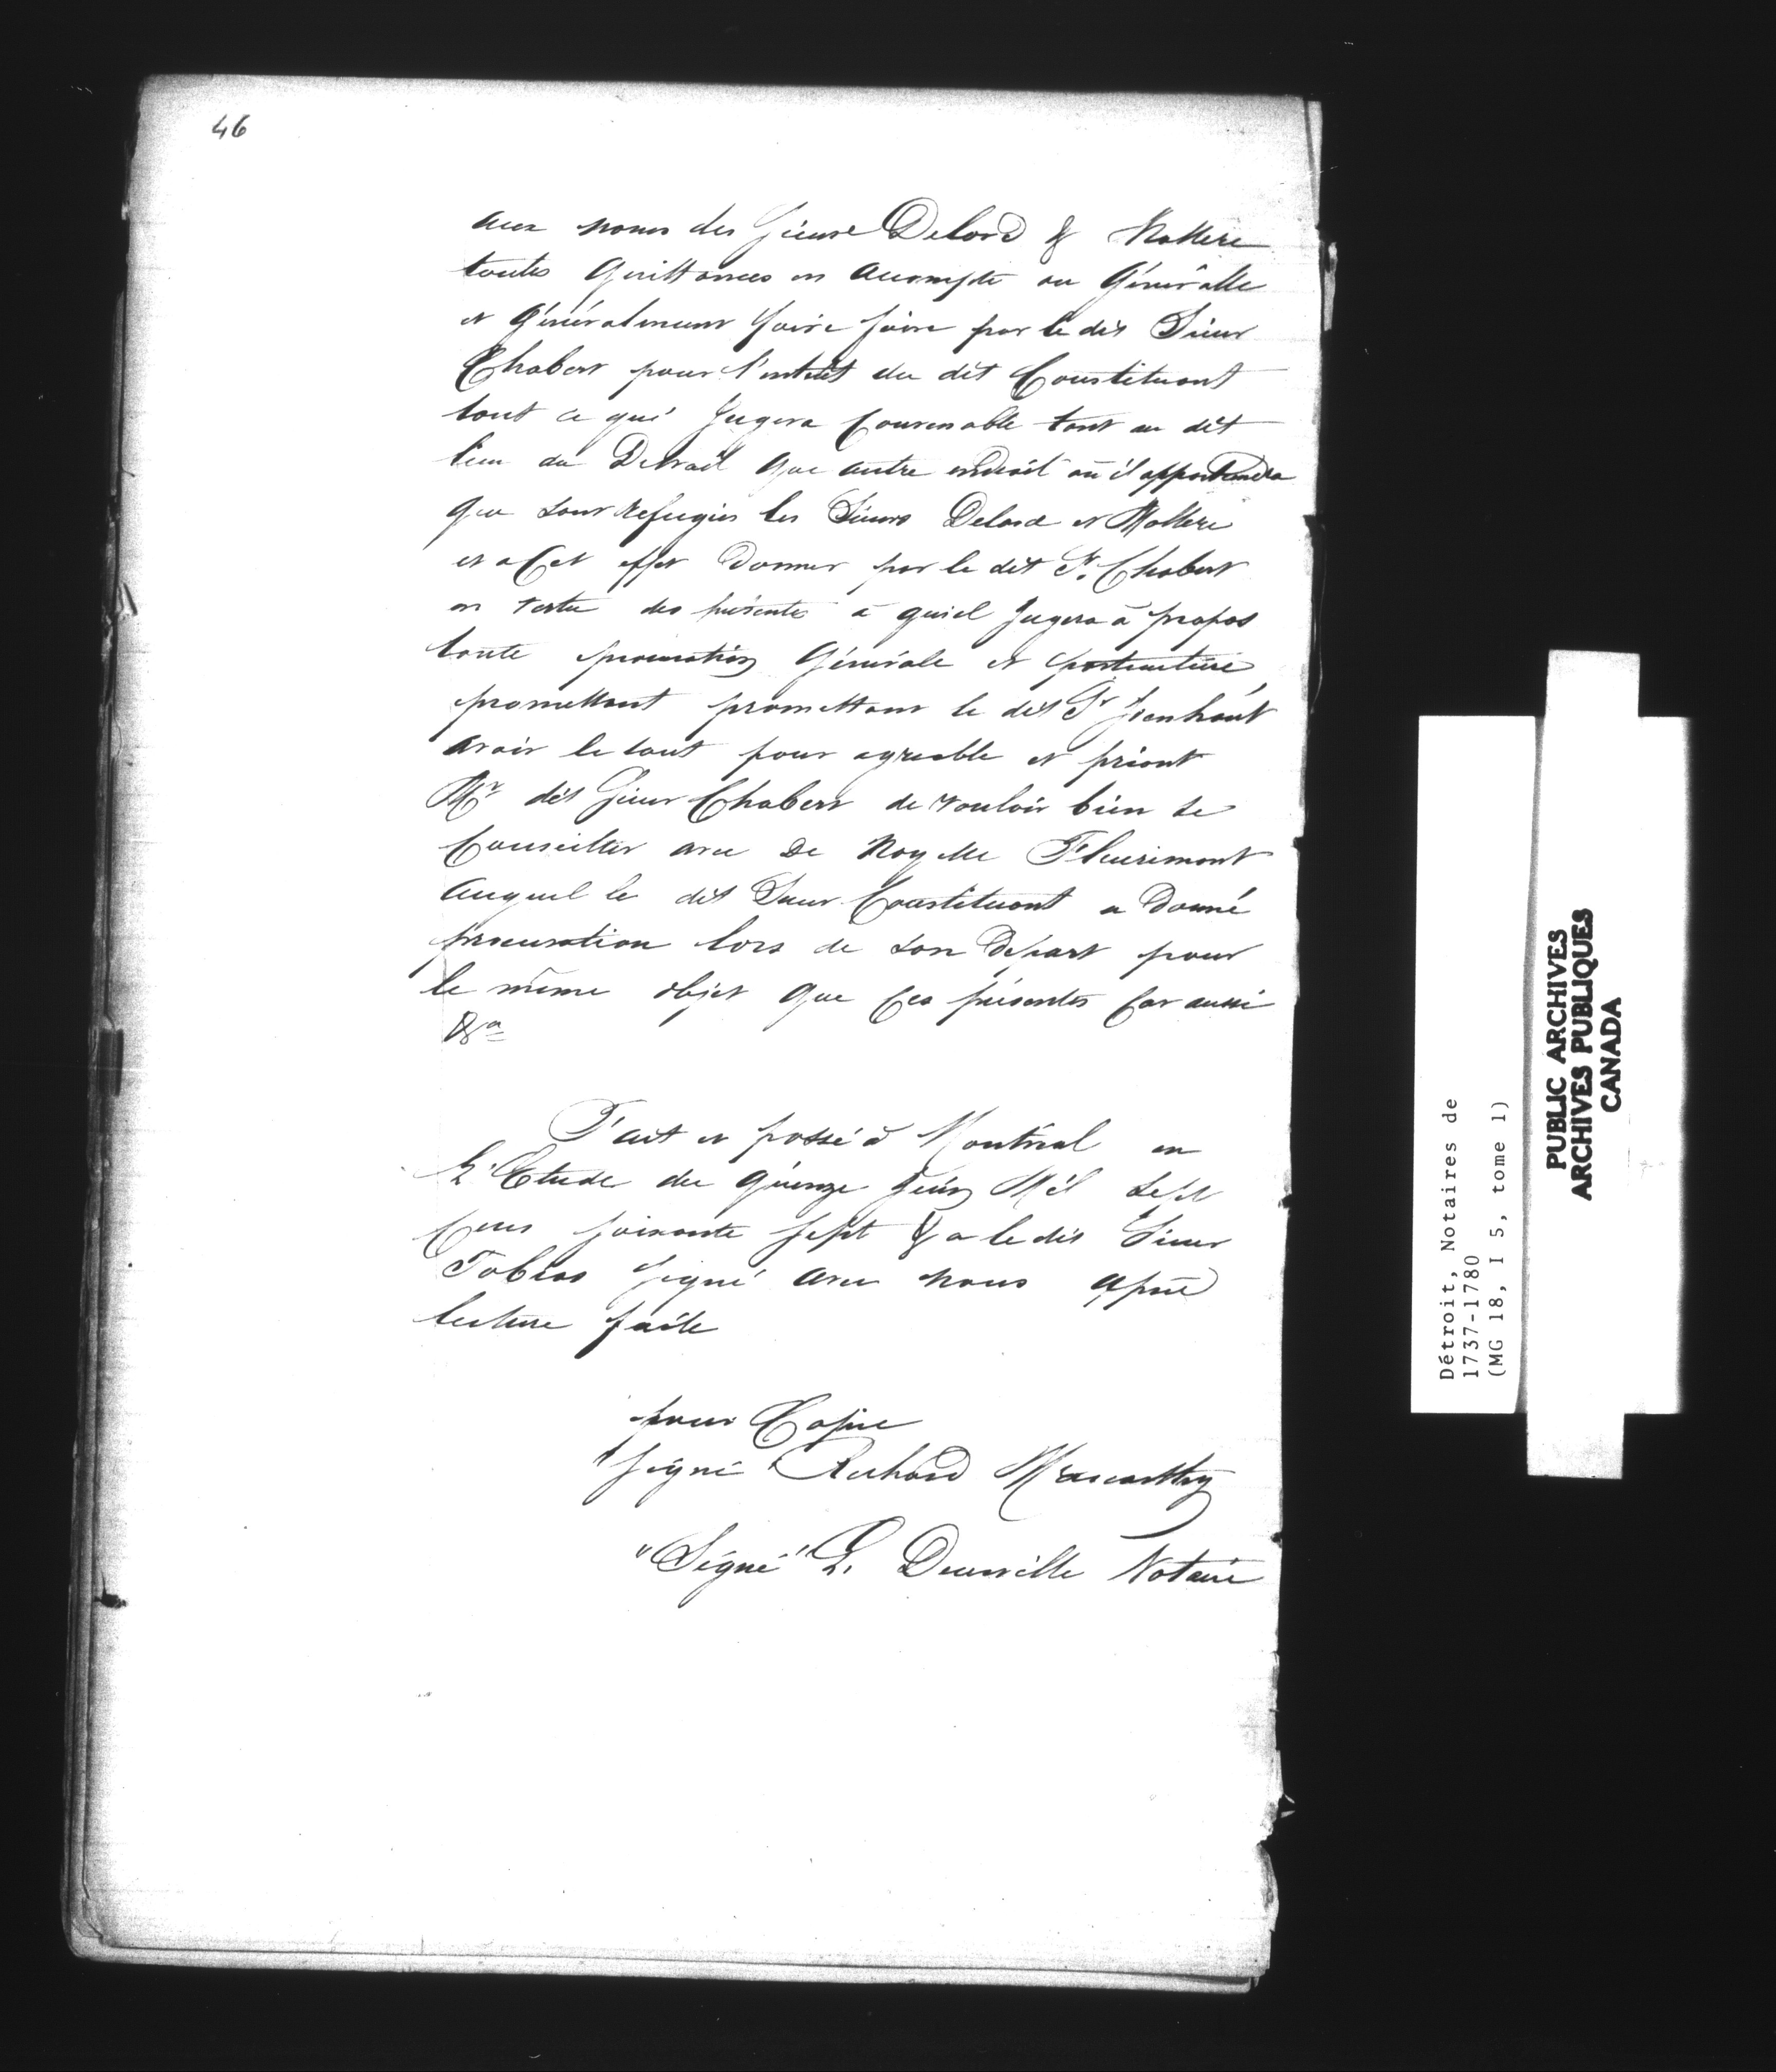 46
aux noms des Sieurs Delord & Mollere
toutes Quittances en accompte ou Générâlle
et Généralement faire faire par le dit Sieur
Chabert pour l'intérêt du dit Constituant
tout ce qui Jugera Convenable tant au dit
lieu du Detroit que autre endroit où il appartiendra
que sont Refugiés les Sieurs Delord et Mollere
et a Cet effet Donner par le dit Sr. Chabert
en vertu des présente à qui il Jugera à propos
toute procuration Générale et
promettant promettant le dit Sr
avoir le tout pour agreable et priant
Mr dit Sieur Chabert de vouloir bien se
Conseiller avec De Noyelle Fleurimont
auquel le dit Sieur Constituant a Donné
procuration lors de son Départ pour
le même objet que Ces présentes Car aussi
&a
Fait et passé à Montréal en
L'Etude du Quinze Juin Mil Sept
Cens soixante sept & a le dit Sieur
Tobias signé avec nous après
lecture faite
pour Copie
"signé" Richard Maccarthy
"Signé" L. Deunville Notaire
Détroit, Notaires de
1737-1780
(MG 18, I 5, tome 1)
PUBLIC ARCHIVES
ARCHIVES PUBLIQUES
CANADA